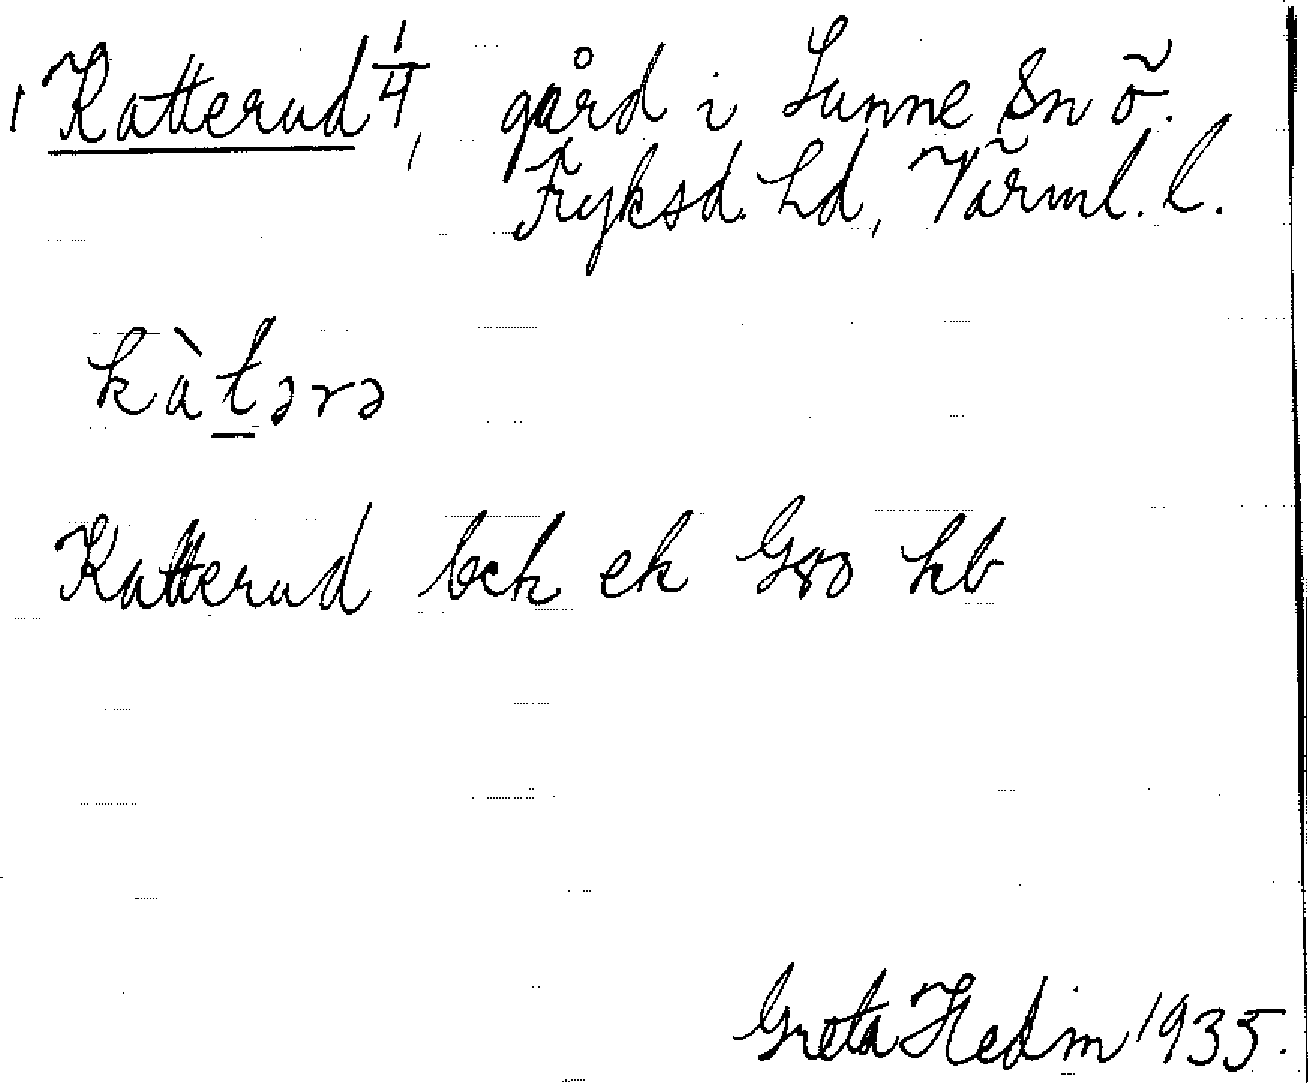 1 Katterud 1/4, gård i Sunne Sn Ö.
Fryksd. hd, Värml. l.
kàtərə
Katterud bek ek Gso hb
Greta Hedin 1935.